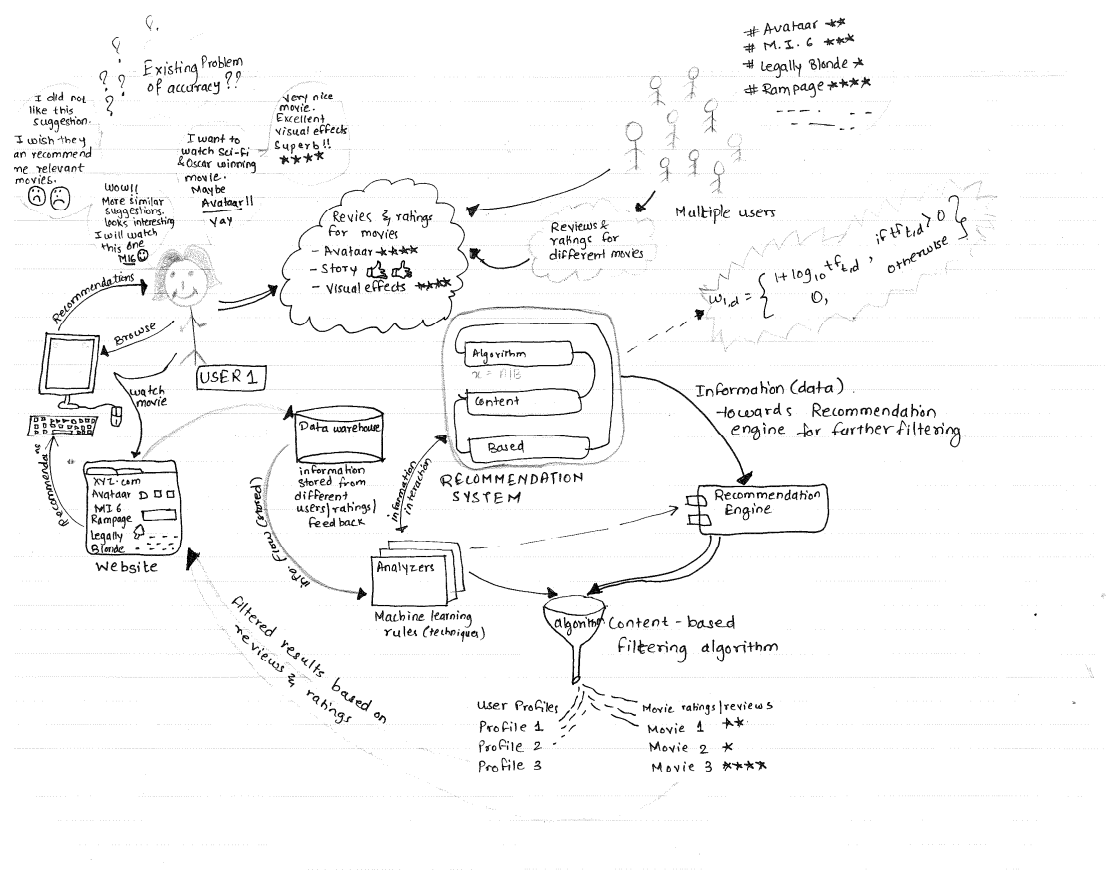 Existing Problem
of accuracy ??
I did not
like this
suggestion.
I wish they
an recommend
me relevant
movies.
Wow!!
More similar
suggestions.
looks interesting
I will watch
this one
MI6
I want to
watch Sci-fi
& Oscar winning
movie.
Maybe
Avataar!!
Yay
Very nice
movie.
Excellent
visual effects
Superb!!
★★★★
# Avataar ★★
# M.I.6 ★★★
# Legally Blonde ★
# Rampage ★★★★
Multiple users
Reviews &
ratings for
different movies
Revies & ratings
for movies
- Avataar ★★★★
- Story 👍 👍
- Visual effects ★★★★
w₁,d = { 1 + log₁₀ tf t,d , if tf t,d > 0
0, otherwise }
Recommendations
Browse
USER 1
watch
movie
Recommendations
XYZ.com
Avataar
MI 6
Rampage
Legally
Blonde
Website
Data warehouse
information
stored from
different
users/ratings/
feedback
info. flow (stored)
information
interaction
Algorithm
x = A/B
Content
Based
RECOMMENDATION
SYSTEM
Information (data)
towards Recommendation
engine for further filtering
Recommendation
Engine
Analyzers
Machine learning
rules (techniques)
algorithm
Content-based
filtering algorithm
filtered results based on
reviews & ratings
User Profiles
Profile 1
Profile 2
Profile 3
Movie ratings/reviews
Movie 1 ★★
Movie 2 ★
Movie 3 ★★★★